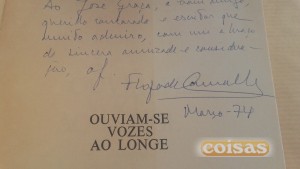 Ao José Graça, o bom amigo,
querido camarada e escritor que
muito admiro, com um abraço
de sincera amizade e camarada-
gem, of.
Março - 74
OUVIAM-SE
VOZES
AO LONGE
coisas